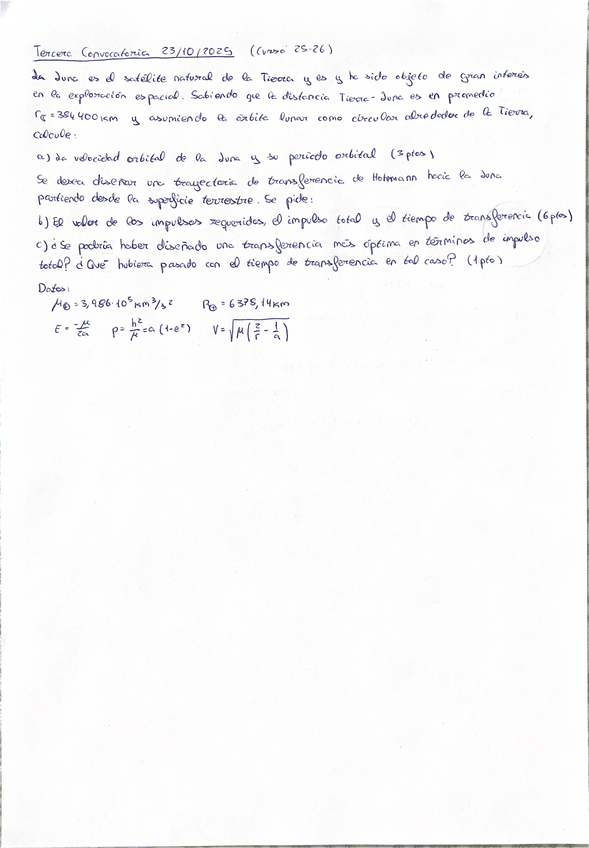 Tercera Convocatoria 23/10/2025 (Curso 25-26)
La Luna es el satélite natural de la Tierra y es y ha sido objeto de gran interés
en la exploración espacial. Sabiendo que la distancia Tierra-Luna es en promedio
r☾ = 384400 km y asumiendo la órbita lunar como circular alrededor de la Tierra,
calcule:
a) La velocidad orbital de la Luna y su periodo orbital (3 ptos)
Se desea diseñar una trayectoria de transferencia de Hohmann hacia la Luna
partiendo desde la superficie terrestre. Se pide:
b) El valor de los impulsos requeridos, el impulso total y el tiempo de transferencia (6 ptos)
c) ¿Se podría haber diseñado una transferencia más óptima en términos de impulso
total? ¿Qué hubiera pasado con el tiempo de transferencia en tal caso? (1 pto)
Datos:
μ⊕ = 3,986·10⁵ km³/s² R⊕ = 6378,14 km
E = -μ/2a p = h²/μ = a(1-e²) V = √(μ(2/r - 1/a))